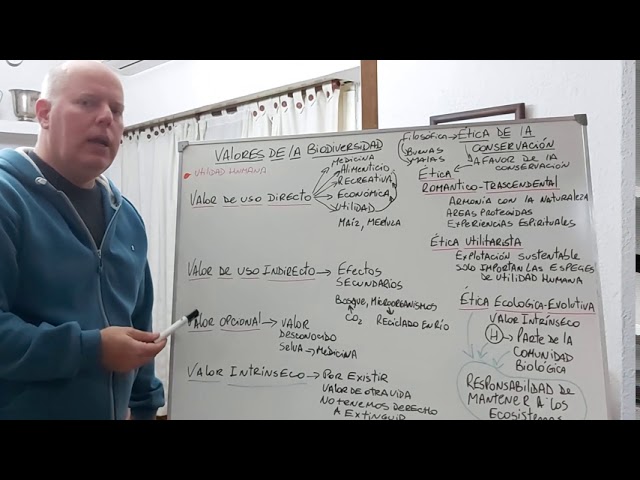 VALORES DE LA BIODIVERSIDAD
UTILIDAD HUMANA
VALOR DE USO DIRECTO
MEDICINA
ALIMENTICIO
RECREATIVA
ECONÓMICA
UTILIDAD
MAÍZ, MEDULA
VALOR DE USO INDIRECTO → EFECTOS
SECUNDARIOS
BOSQUE, MICROORGANISMOS
CO2 RECICLADO EN RÍO
VALOR OPCIONAL → VALOR
DESCONOCIDO
SELVA → MEDICINA
VALOR INTRÍNSECO → POR EXISTIR
VALOR DE OTRA VIDA
NO TENEMOS DERECHO
A EXTINGUIR
FILOSÓFICA → ÉTICA DE LA
CONSERVACIÓN
BUENAS
MALAS
A FAVOR DE LA
CONSERVACIÓN
ÉTICA
ROMANTICO-TRASCENDENTAL
ARMONIA CON LA NATURALEZA
AREAS PROTEGIDAS
EXPERIENCIAS ESPIRITUALES
ÉTICA UTILITARISTA
EXPLOTACIÓN SUSTENTABLE
SOLO IMPORTAN LAS ESPECIES
DE UTILIDAD HUMANA
ÉTICA ECOLOGICA-EVOLUTIVA
VALOR INTRÍNSECO
H → PARTE DE LA
COMUNIDAD
BIOLÓGICA
RESPONSABILDAD DE
MANTENER A LOS
ECOSISTEMAS